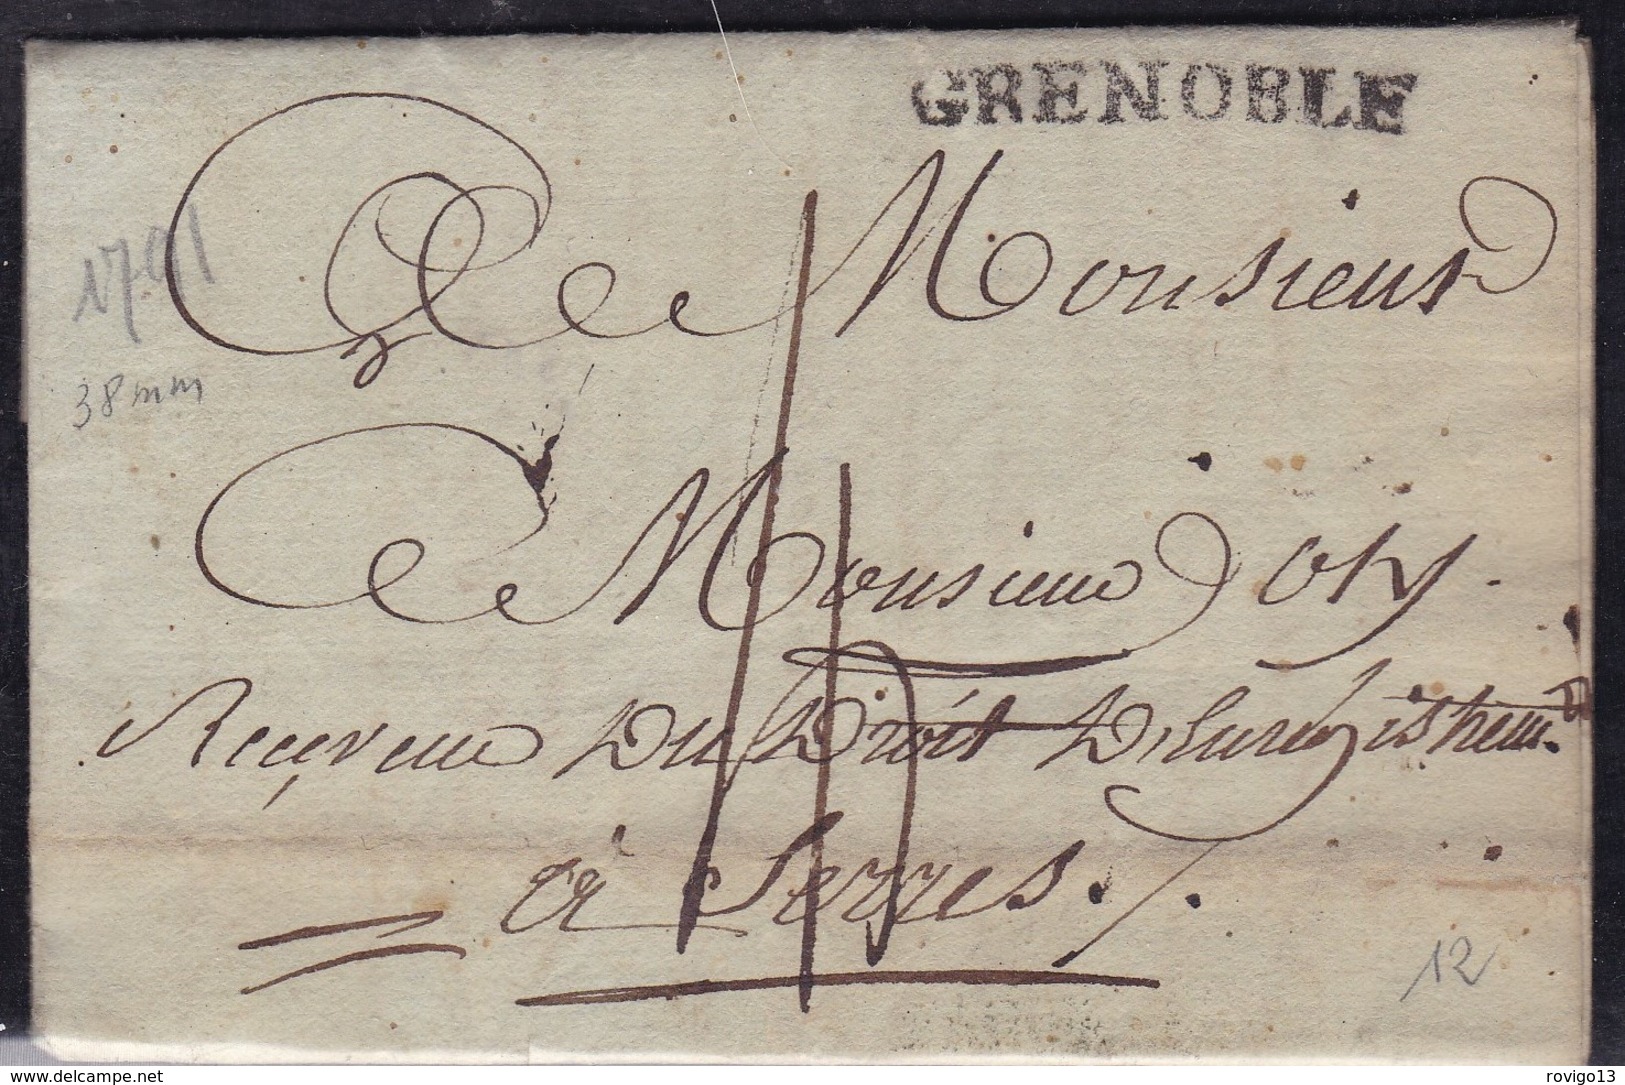 GRENOBLE
A Monsieur
1791
38 mm
A Monsieur
Receveur Du Droit D'Enregistrem.t
à Serres ./.
12
www.delcampe.net
rovigo13